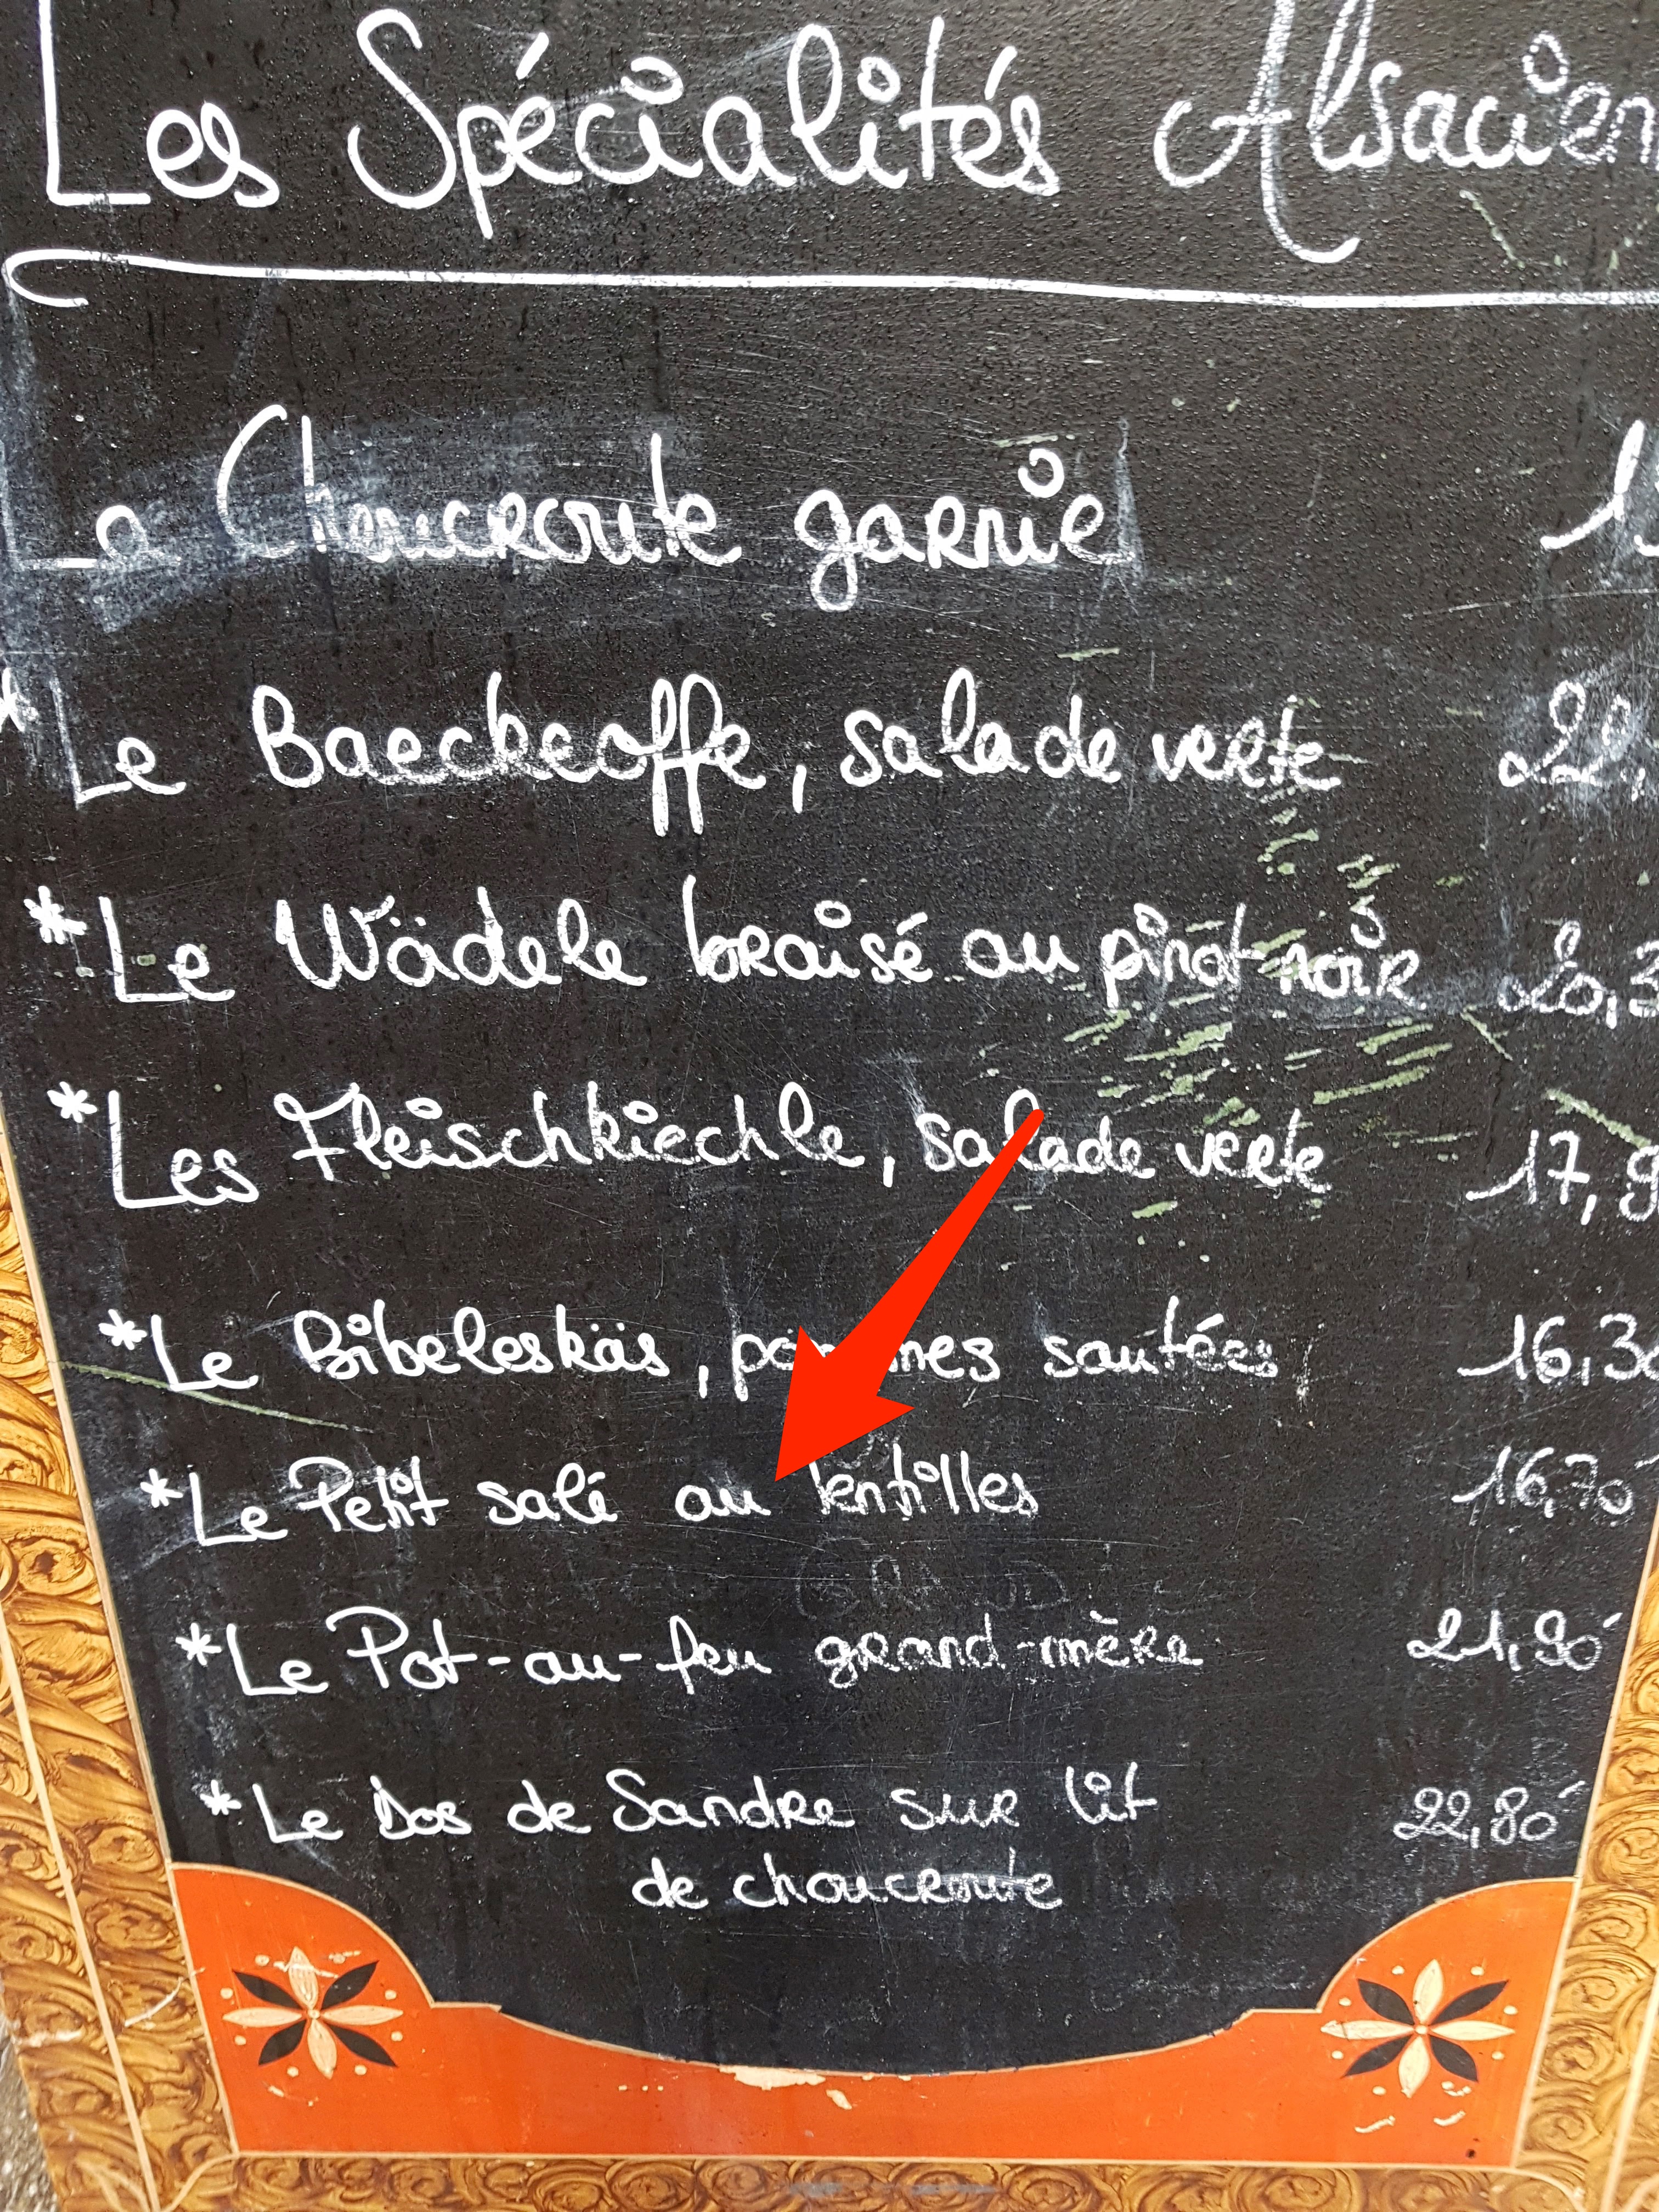 Les Spécialités Alsacien
La Choucroute garnie 1
* Le Baeckeoffe, salade verte 22,
* Le Wädele braisé au pinot noir 20,3
* Les Fleischkiechle, salade verte 17,9
* Le Bibeleskäs, sautées 16,30
* Le Petit salé au lentilles 16,70
* Le Pot-au-feu grand-mère 21,90
* Le Dos de Sandre sur lit 22,80
de choucroute